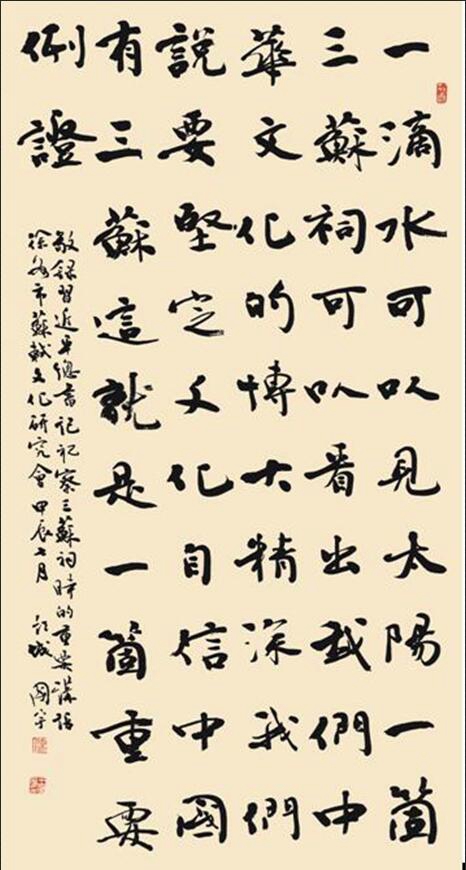 一滴水可以見太陽一箇
三蘇祠可以看出我們中
華文化的博大精深我們
說要堅定文化自信中國
有三蘇這就是一箇重要
例證
敬録習近平總書記視察三蘇祠時的重要講話
徐州市蘇軾文化研究會甲辰七月彭城國